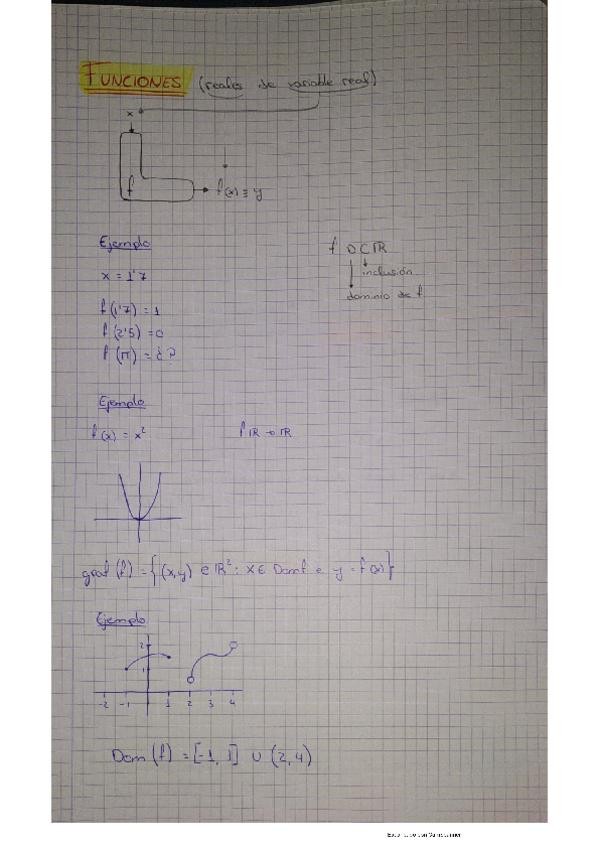 FUNCIONES (reales de variable real)
x
f
f(x) ≡ y
Ejemplo
x = 1'7
f(1'7) = 1
f(2'5) = 0
f(π) = ¿?
f D⊂ℝ
inclusión
dominio de f
Ejemplo
f(x) = x²
f ℝ → ℝ
graf(f) = {(x,y) ∈ ℝ² : x ∈ Domf e y = f(x)}
Ejemplo
2
1
-2 -1 1 2 3 4
Dom(f) = [-1, 1] ∪ (2, 4)